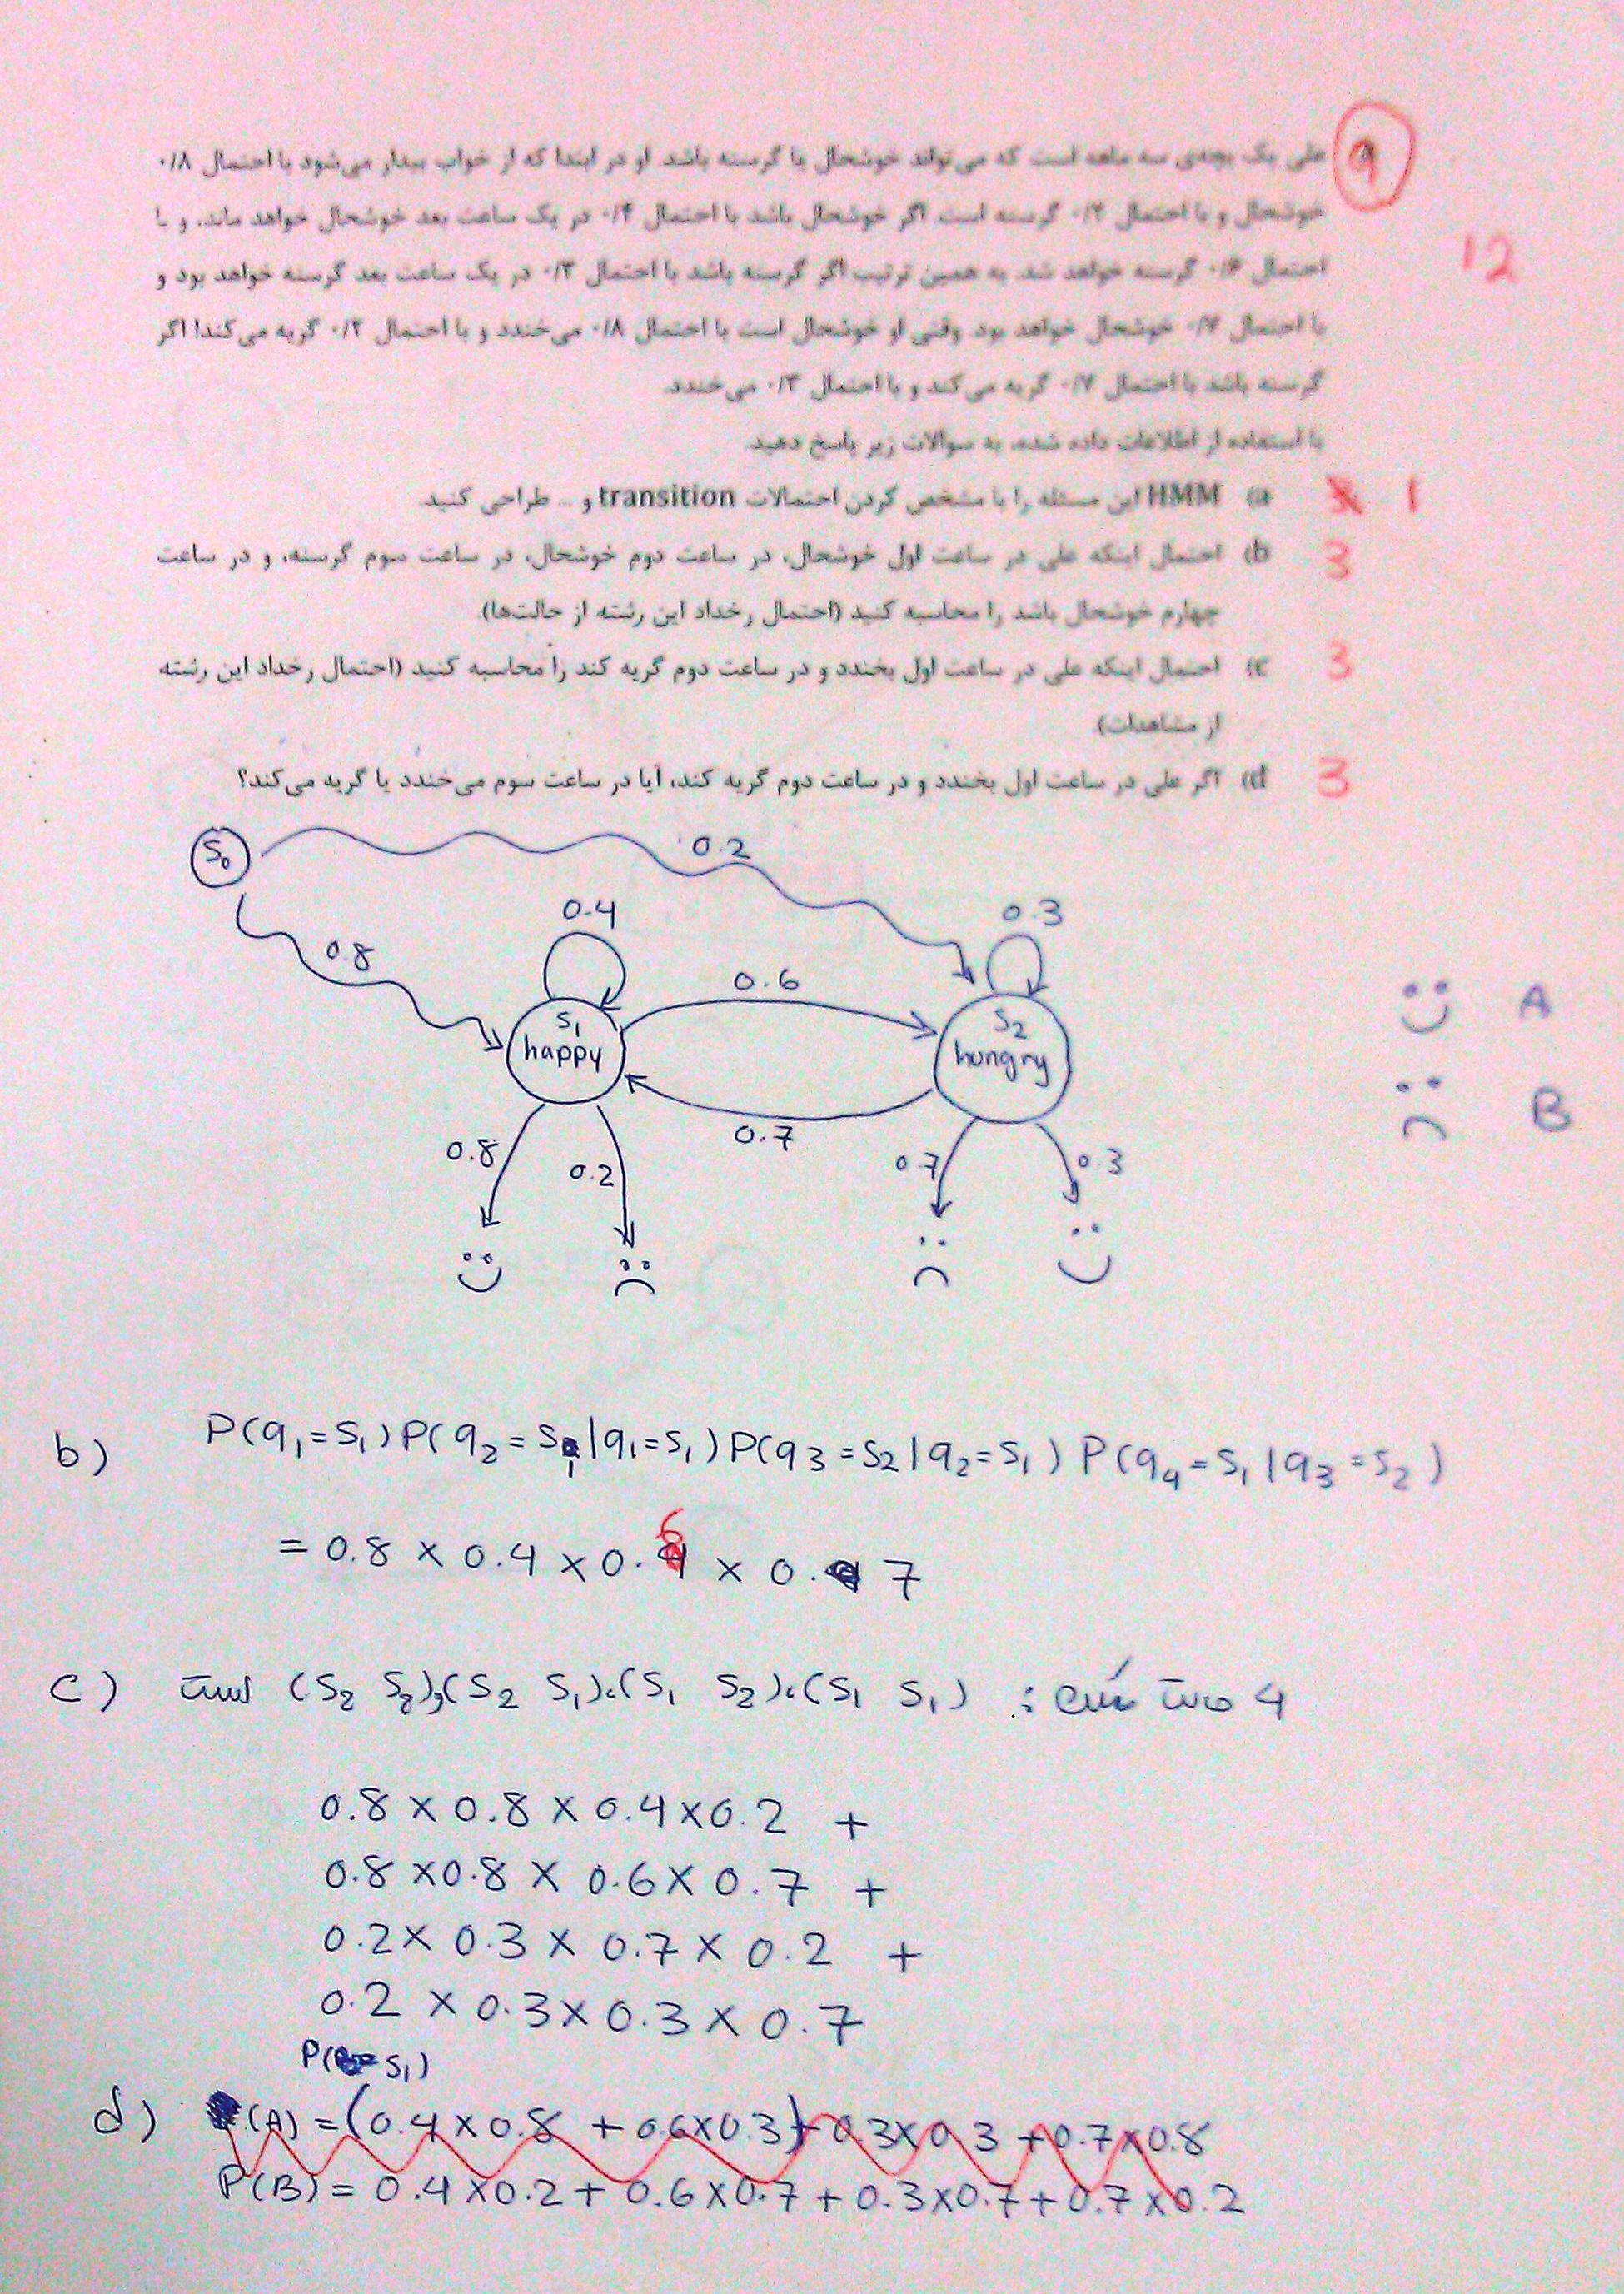 ۹ علی یک بچه‌ی سه ماهه است که می‌تواند خوشحال یا گرسنه باشد او در ابتدا که از خواب بیدار می‌شود با احتمال ۰/۸
خوشحال و با احتمال ۰/۲ گرسنه است. اگر خوشحال باشد با احتمال ۰/۴ در یک ساعت بعد خوشحال خواهد ماند. و با
12
احتمال ۰/۶ گرسنه خواهد شد. به همین ترتیب اگر گرسنه باشد با احتمال ۰/۳ در یک ساعت بعد گرسنه خواهد بود و
با احتمال ۰/۷ خوشحال خواهد بود. وقتی او خوشحال است با احتمال ۰/۸ می‌خندد و با احتمال ۰/۲ گریه می‌کند! اگر
گرسنه باشد با احتمال ۰/۷ گریه می‌کند و با احتمال ۰/۳ می‌خندد.
با استفاده از اطلاعات داده شده، به سوالات زیر پاسخ دهید.
1 (a HMM این مسئله را با مشخص کردن احتمالات transition و ... طراحی کنید.
3 (b احتمال اینکه علی در ساعت اول خوشحال، در ساعت دوم خوشحال، در ساعت سوم گرسنه، و در ساعت
چهارم خوشحال باشد را محاسبه کنید (احتمال رخداد این رشته از حالت‌ها).
3 (c احتمال اینکه علی در ساعت اول بخندد و در ساعت دوم گریه کند را محاسبه کنید (احتمال رخداد این رشته
از مشاهدات)
3 (d اگر علی در ساعت اول بخندد و در ساعت دوم گریه کند، آیا در ساعت سوم می‌خندد یا گریه می‌کند؟
S₀
0.2
0.4
0.3
0.8
0.6
S₁
happy
S₂
hungry
A
B
0.7
0.8
0.2
0.7
0.3
b) P(q₁=S₁) P(q₂=S₁|q₁=S₁) P(q₃=S₂|q₂=S₁) P(q₄=S₁|q₃=S₂)
= 0.8 × 0.4 × 0.6 × 0.7
c) (S₂ S₂) و (S₂ S₁) ، (S₁ S₂) ، (S₁ S₁) : 4
0.8 × 0.8 × 0.4 × 0.2 +
0.8 × 0.8 × 0.6 × 0.7 +
0.2 × 0.3 × 0.7 × 0.2 +
0.2 × 0.3 × 0.3 × 0.7
d) (A) = (0.4 × 0.8 + 0.6 × 0.3) + 0.3 × 0.3 + 0.7 × 0.8
P(B) = 0.4 × 0.2 + 0.6 × 0.7 + 0.3 × 0.7 + 0.7 × 0.2